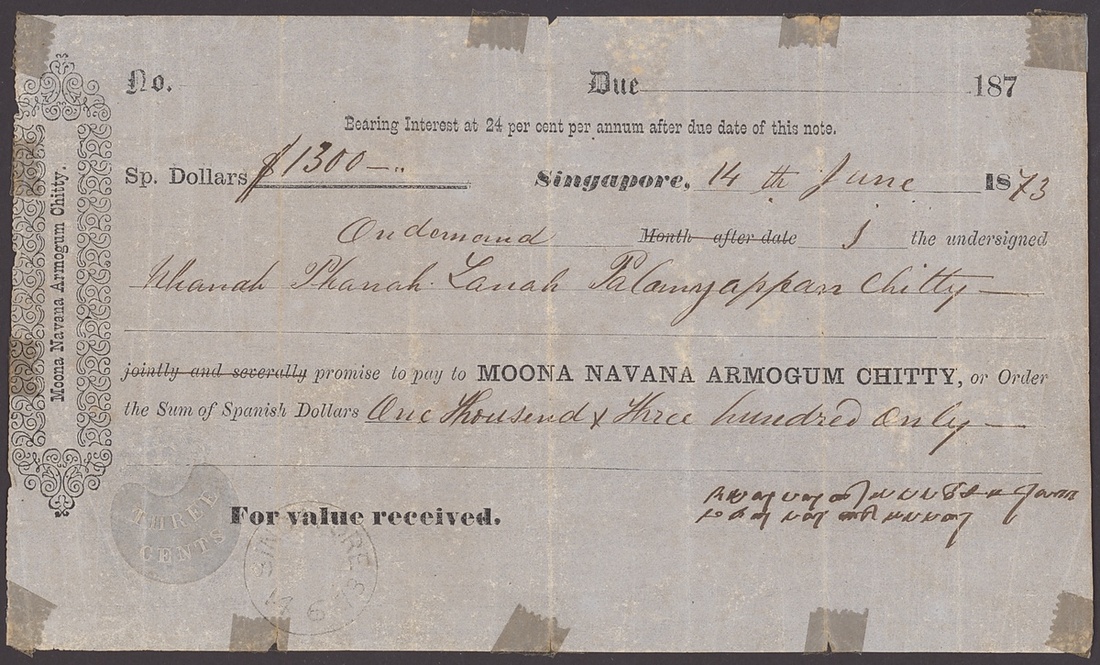 No. Due 187
Bearing Interest at 24 per cent per annum after due date of this note.
Sp. Dollars $1300 —..
Singapore, 14 th June 1873
On demand Month after date I the undersigned
Lanah Palaneyappan Chitty —
jointly and severally promise to pay to MOONA NAVANA ARMOGUM CHITTY, or Order
the Sum of Spanish Dollars One Thousend & Three hundred only —
For value received.
Moona Navana Armogum Chitty.
THREE
CENTS
SINGAPORE
6 73